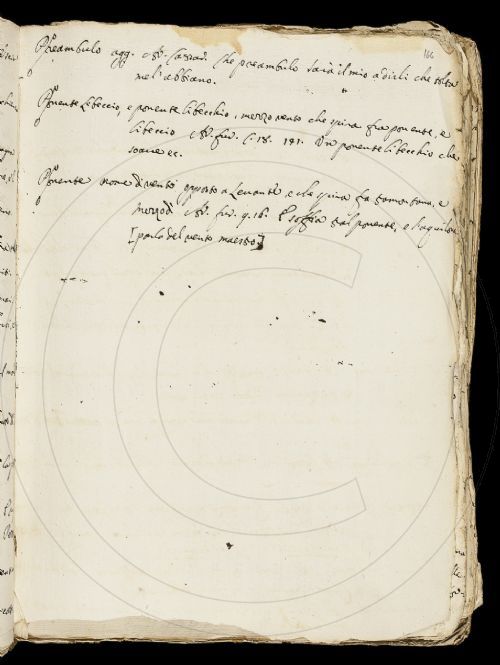 166
Preambulo agg. Ar. Cassar. Che preambulo sarà il mio a dirli che tolta
me l'abbiano.
Ponente Libeccio, e ponente libecchio, mezzo vento che spira fra ponente, e
libeccio Ar. fur. C. 18. 141. Un ponente libecchio che
soave ec.
Ponente nome di vento opposto a Levante, e che spira fra tramontana, e
Mezzodì Ar. fur. 9. 16. E soffia dal ponente, e
[parla del vento maestro]